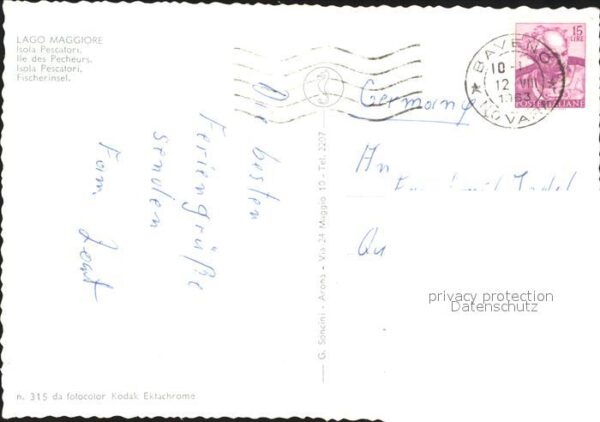 LAGO MAGGIORE
Isola Pescatori.
Ile des Pecheurs.
Isola Pescatori.
Fischerinsel.
15
LIRE
POSTE ITALIANE
BAVENO
10-
12 VIII
1963
NOVARA
Germany
Die besten
Feriengrüße
senden
Fam.
An
privacy protection
Datenschutz
G. Soncini - Arona - Via 24 Maggio 10 - Tel. 2207
n. 315 da fotocolor Kodak Ektachrome